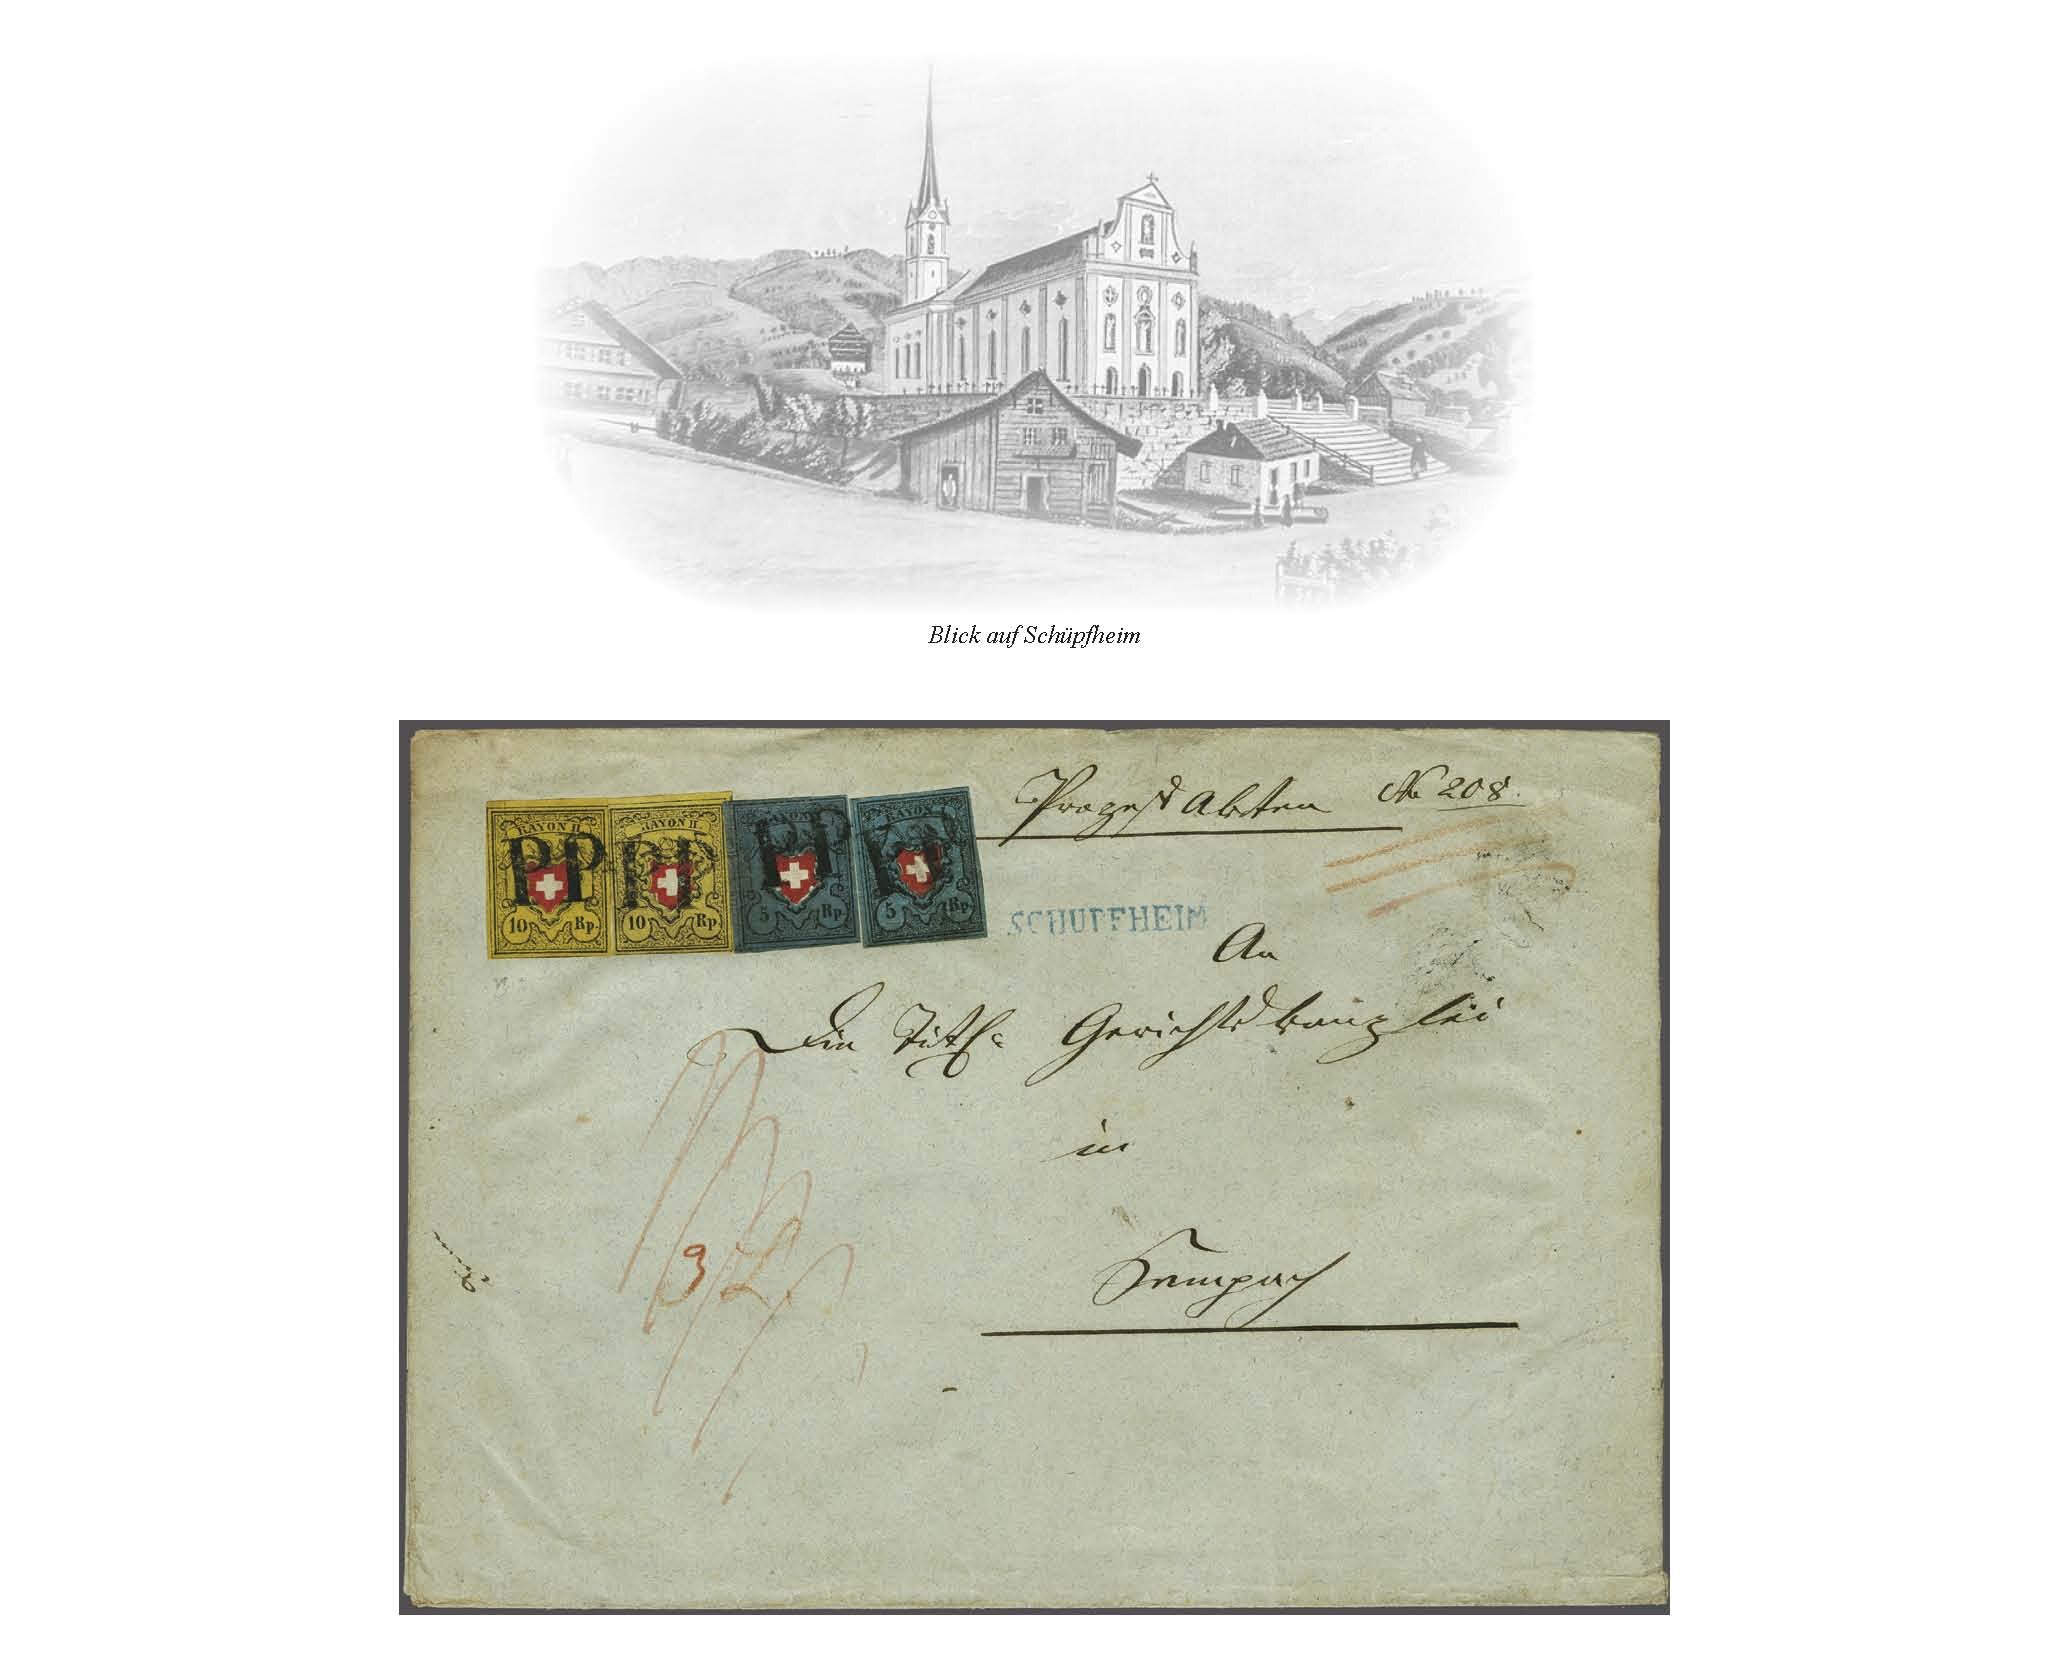 Blick auf Schüpfheim
Prozeß Akten No 208.
RAYON II RAYON II RAYON I RAYON I
PP PP PP PP
10 Rp. 10 Rp. 5 Rp. 5 Rp.
SCHÜPFHEIM
An
Die Titl. Gerichtskanzlei
in
Sempach